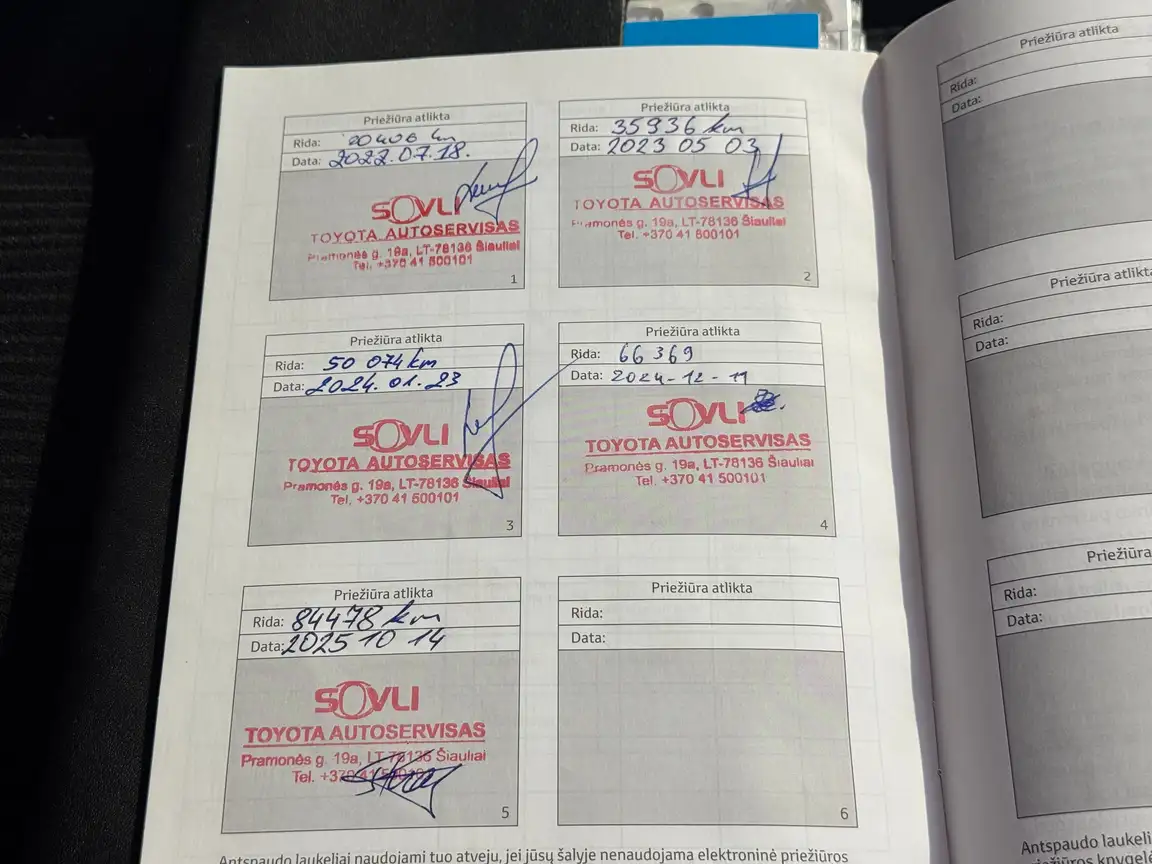 Priežiūra atlikta
Rida: 20406 km
Data: 2022.07.18.
SOVLI
TOYOTA AUTOSERVISAS
Pramonės g. 19a, LT-78136 Šiauliai
Tel. +370 41 500101
1
Priežiūra atlikta
Rida: 35936 km
Data: 2023 05 03
SOVLI
TOYOTA AUTOSERVISAS
Pramonės g. 19a, LT-78136 Šiauliai
Tel. +370 41 500101
2
Priežiūra atlikta
Rida: 50 074 km
Data: 2024.01.23
SOVLI
TOYOTA AUTOSERVISAS
Pramonės g. 19a, LT-78136 Šiauliai
Tel. +370 41 500101
3
Priežiūra atlikta
Rida: 66 369
Data: 2024-12-11
SOVLI
TOYOTA AUTOSERVISAS
Pramonės g. 19a, LT-78136 Šiauliai
Tel. +370 41 500101
4
Priežiūra atlikta
Rida: 84478 km
Data: 2025 10 14
SOVLI
TOYOTA AUTOSERVISAS
Pramonės g. 19a, LT-78136 Šiauliai
Tel. +370 41
5
Priežiūra atlikta
Rida:
Data:
6
Antspaudo laukeliai naudojami tuo atveju, jei jūsų šalyje nenaudojama elektroninė priežiūros
Priežiūra atlikta
Rida:
Data:
Priežiūra atlikta
Rida:
Data:
Priežiūra
Rida:
Data:
Antspaudo laukeli